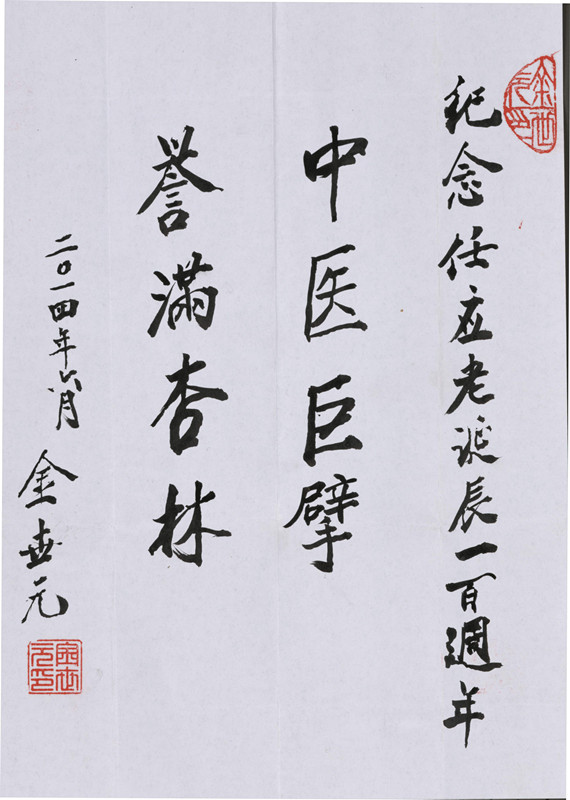 纪念任应老诞辰一百週年
中医巨擘
誉满杏林
二〇一四年六月
金世元
金世元印